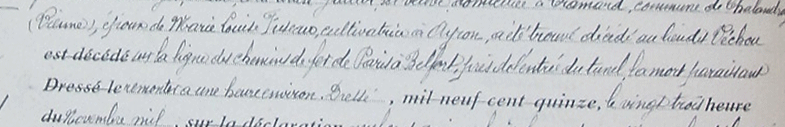 domiciliée à Cramard, commune de Chalandray
(Vienne), époux de Marie Louise Fuseau, cultivatrice à Ayron, a été trouvé décédé au lieudit Péchou
est décédé sur la ligne des chemins de fer de Paris à Belfort, près de l'entrée du tunel, la mort paraissant
Dressé le remonter a une heure environ. Dressé , mil neuf cent quinze, le vingt trois heure
du Novembre mil , sur la déclaration